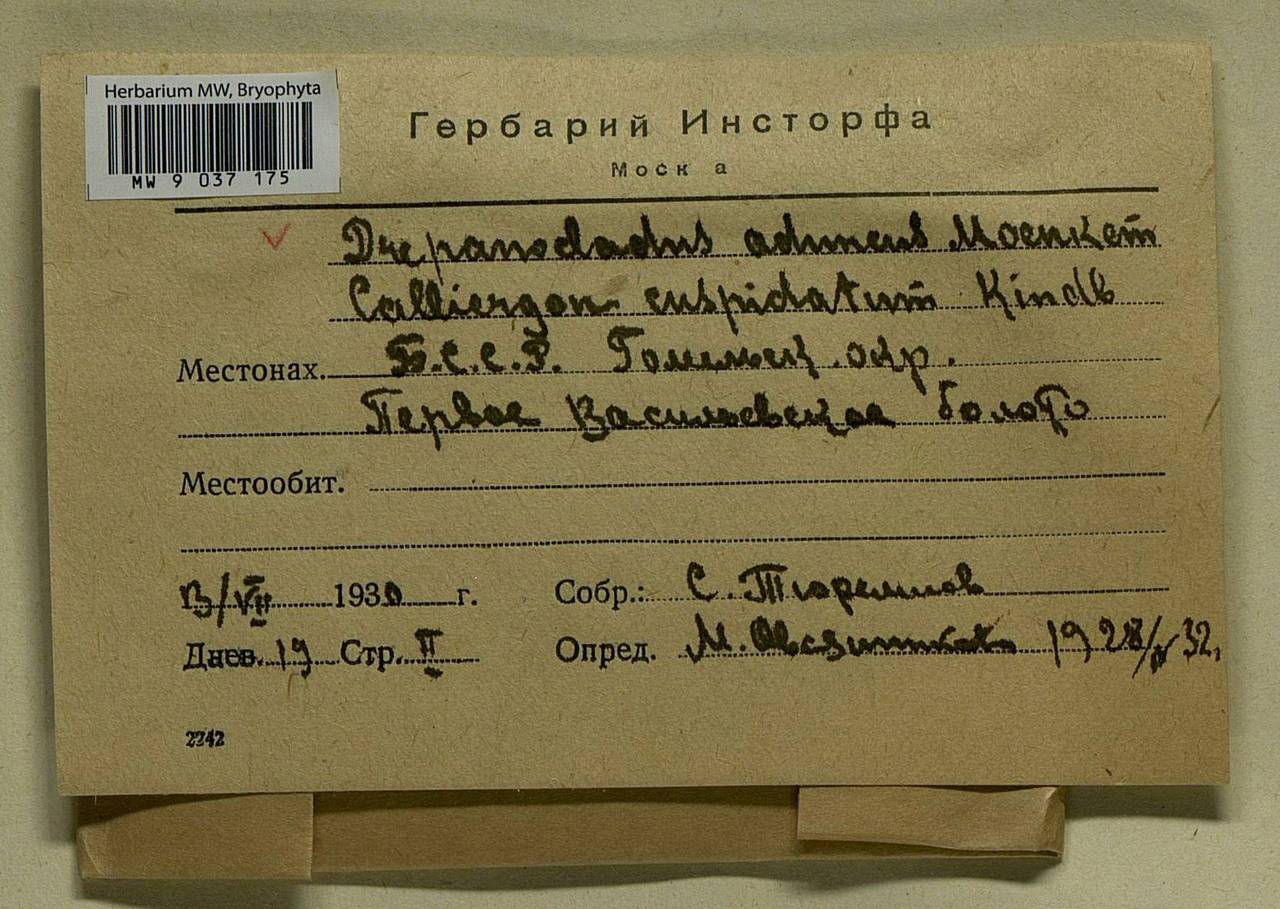 Herbarium MW, Bryophyta
MW 9 037 175
Гербарий Инсторфа
Моск а
Drepanocladus aduncus Moenkem
Calliergon cuspidatum Kindb
Местонах. Б.С.С.Р. Гомельск. окр.
Первое Васильевское болото
Местообит.
13/VII 1930 г. Собр.: С. Тюремнов
Днев. 19 Стр. II Опред. М.
2242